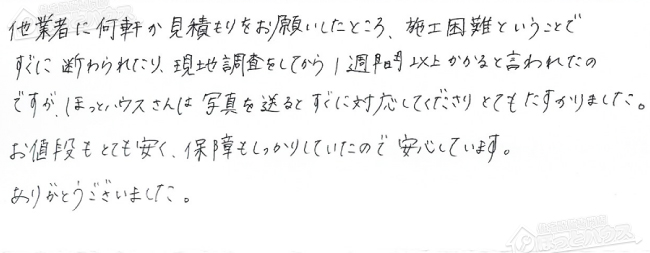 他業者に何軒か見積もりをお願いしたところ、施工困難ということで
すぐに断わられたり、現地調査をしてから1週間以上かかると言われたの
ですが、ほっとハウスさんは写真を送るとすぐに対応してくださりとてもたすかりました。
お値段もとても安く、保障もしっかりしていたので安心しています。
ありがとうございました。